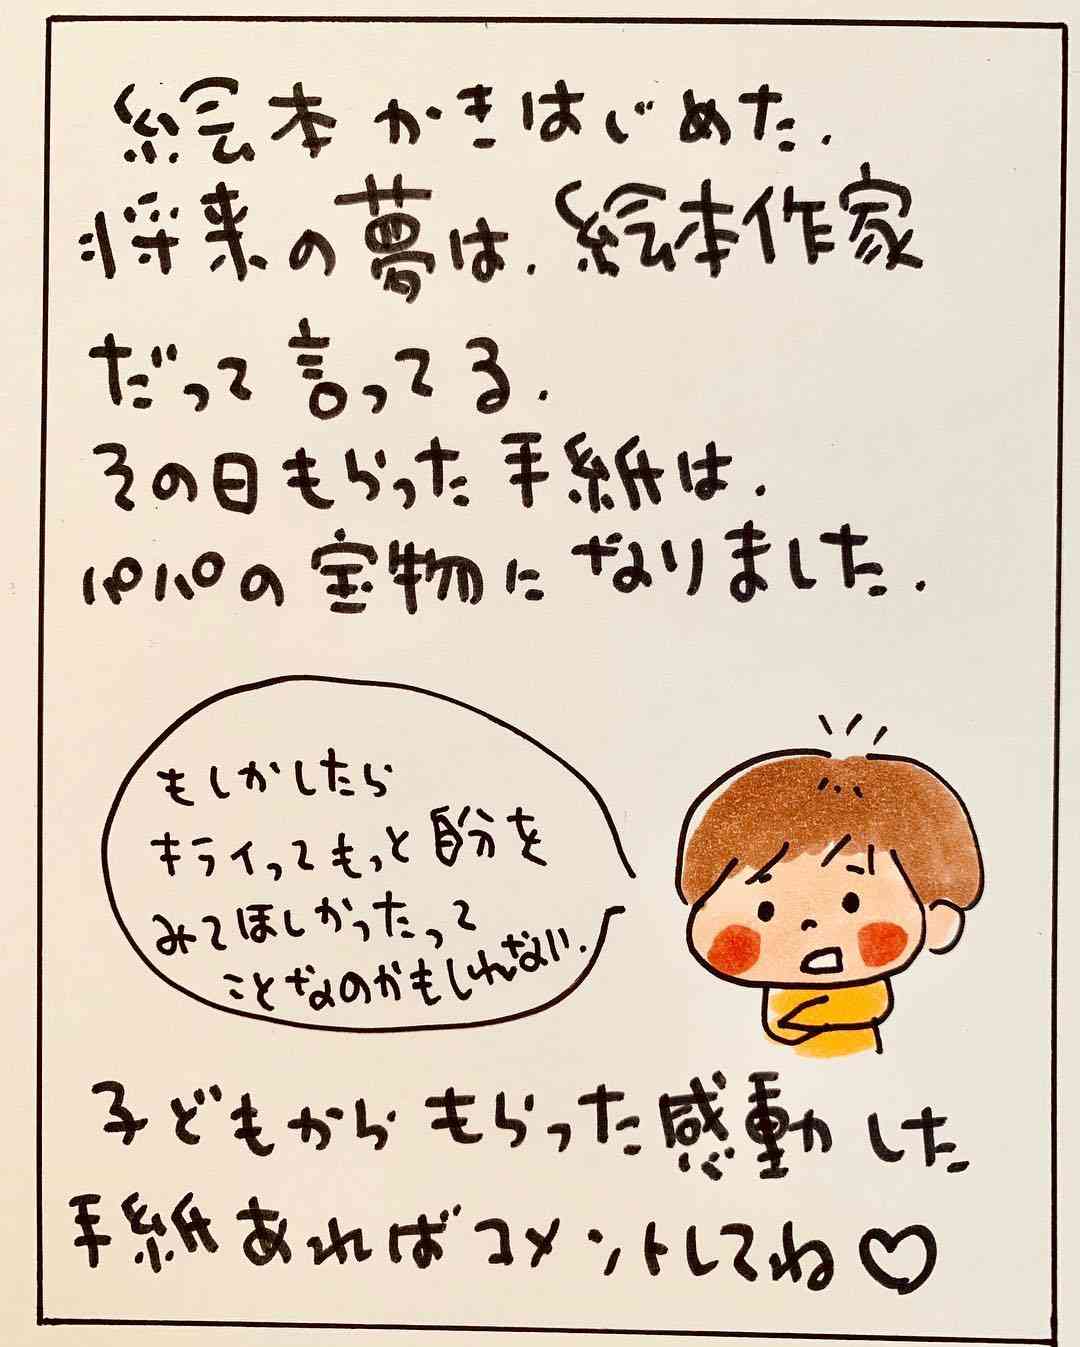 絵本かきはじめた.
将来の夢は.絵本作家
だって言ってる.
その日もらった手紙は.
パパの宝物になりました.
もしかしたら
キライってもっと自分を
みてほしかったって
ことなのかもしれない.
子どもからもらった感動した
手紙あればコメントしてね♡